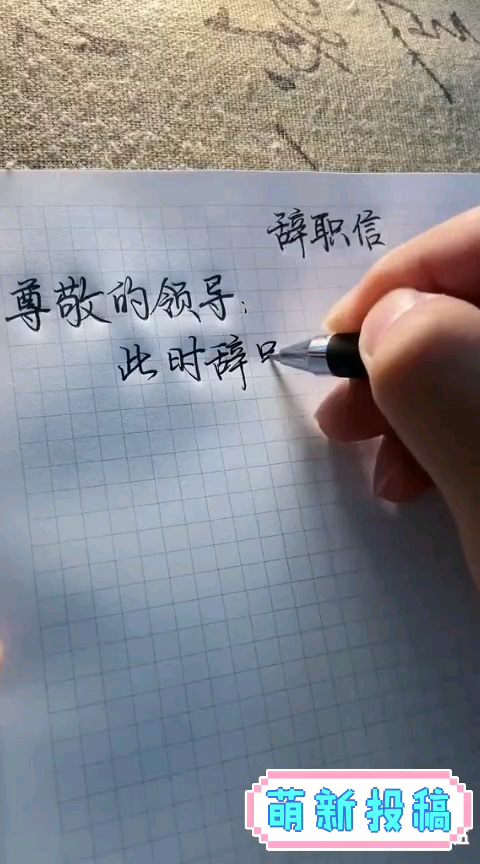 辞职信
尊敬的领导:
此时辞
萌新投稿